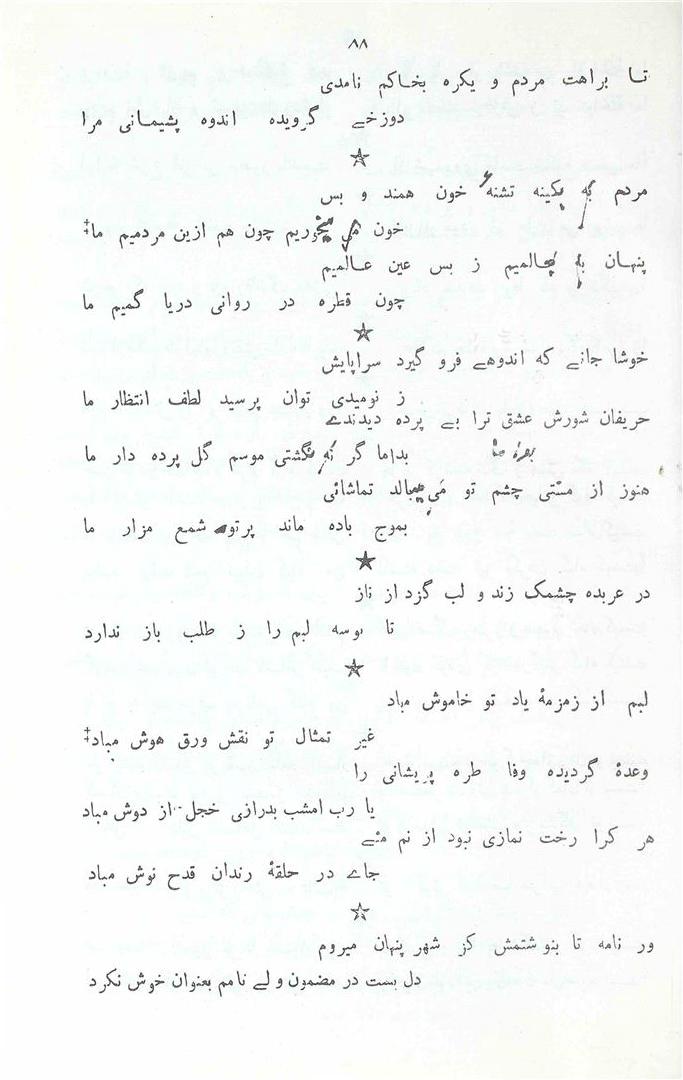 ۸۸
تا براهت مردم و یکره بخاکم نامدی
دوزخے گرویده اندوه پشیمانی مرا
مردم به بکینه تشنه خون همند و بس
خون می خوریم چون هم ازین مردمیم ما‡
پنهان به عالمیم ز بس عین عالمیم
چون قطره در روانی دریا گمیم ما
خوشا جانے که اندوهے فرو گیرد سراپایش
ز نومیدی توان پرسید لطف انتظار ما
حریفان شورش عشق ترا بے پرده دیدندے
بداما گر نه گشتی موسم گل پرده دار ما
هنوز از مستی چشم تو می بالد تماشائی
بموج باده ماند پرتو شمع مزار ما
در عربده چشمک زند و لب گزد از ناز
تا بوسه لبم را ز طلب باز ندارد
لبم از زمزمۂ یاد تو خاموش مباد
غیر تمثال تو نقش ورق هوش مباد‡
وعدۂ گردیده وفا طره پریشانی را
یا رب امشب بدرازی خجل از دوش مباد
هر کرا رخت نمازی نبود از نم مئے
جاے در حلقۂ رندان قدح نوش مباد
ور نامه تا بنوشتمش کز شهر پنهان میروم
دل بست در مضمون و لے نامم بعنوان خوش نکرد